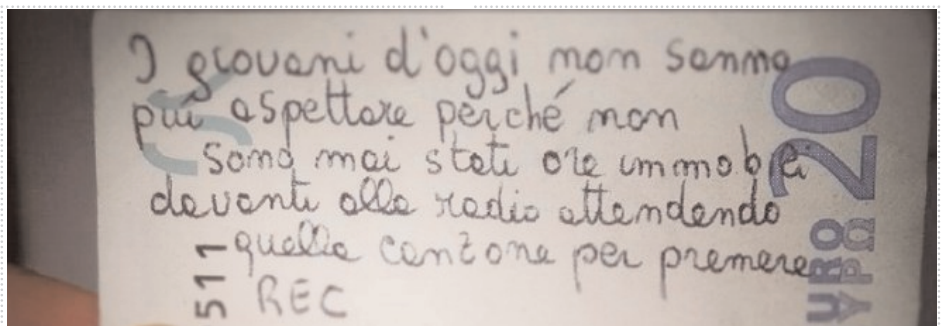 I giovani d'oggi non sanno
più aspettare perché non
sono mai stati ore immobili
davanti alla radio attendendo
quella canzone per premere
REC
511
20
EURO
ΕΥΡΩ